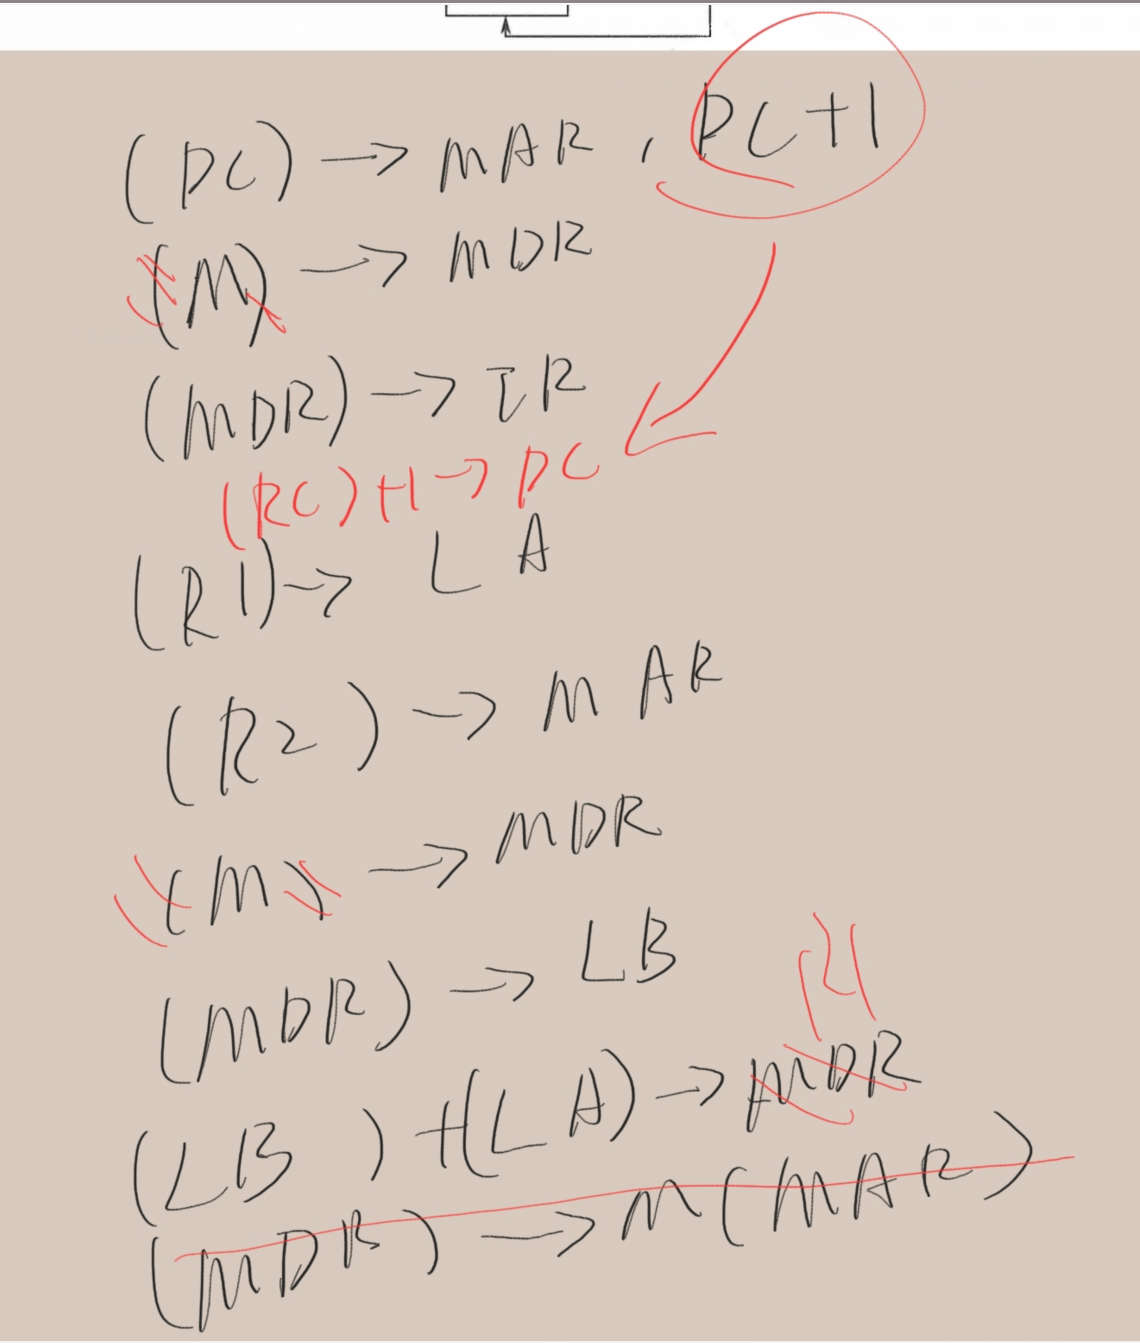 (PC) → MAR , PC+1
(M) → MDR
(MDR) → IR
(PC)+1 → PC
(R1) → LA
(R2) → MAR
(M) → MDR
(MDR) → LB
R1
(LB) + (LA) → MDR
(MDR) → M(MAR)